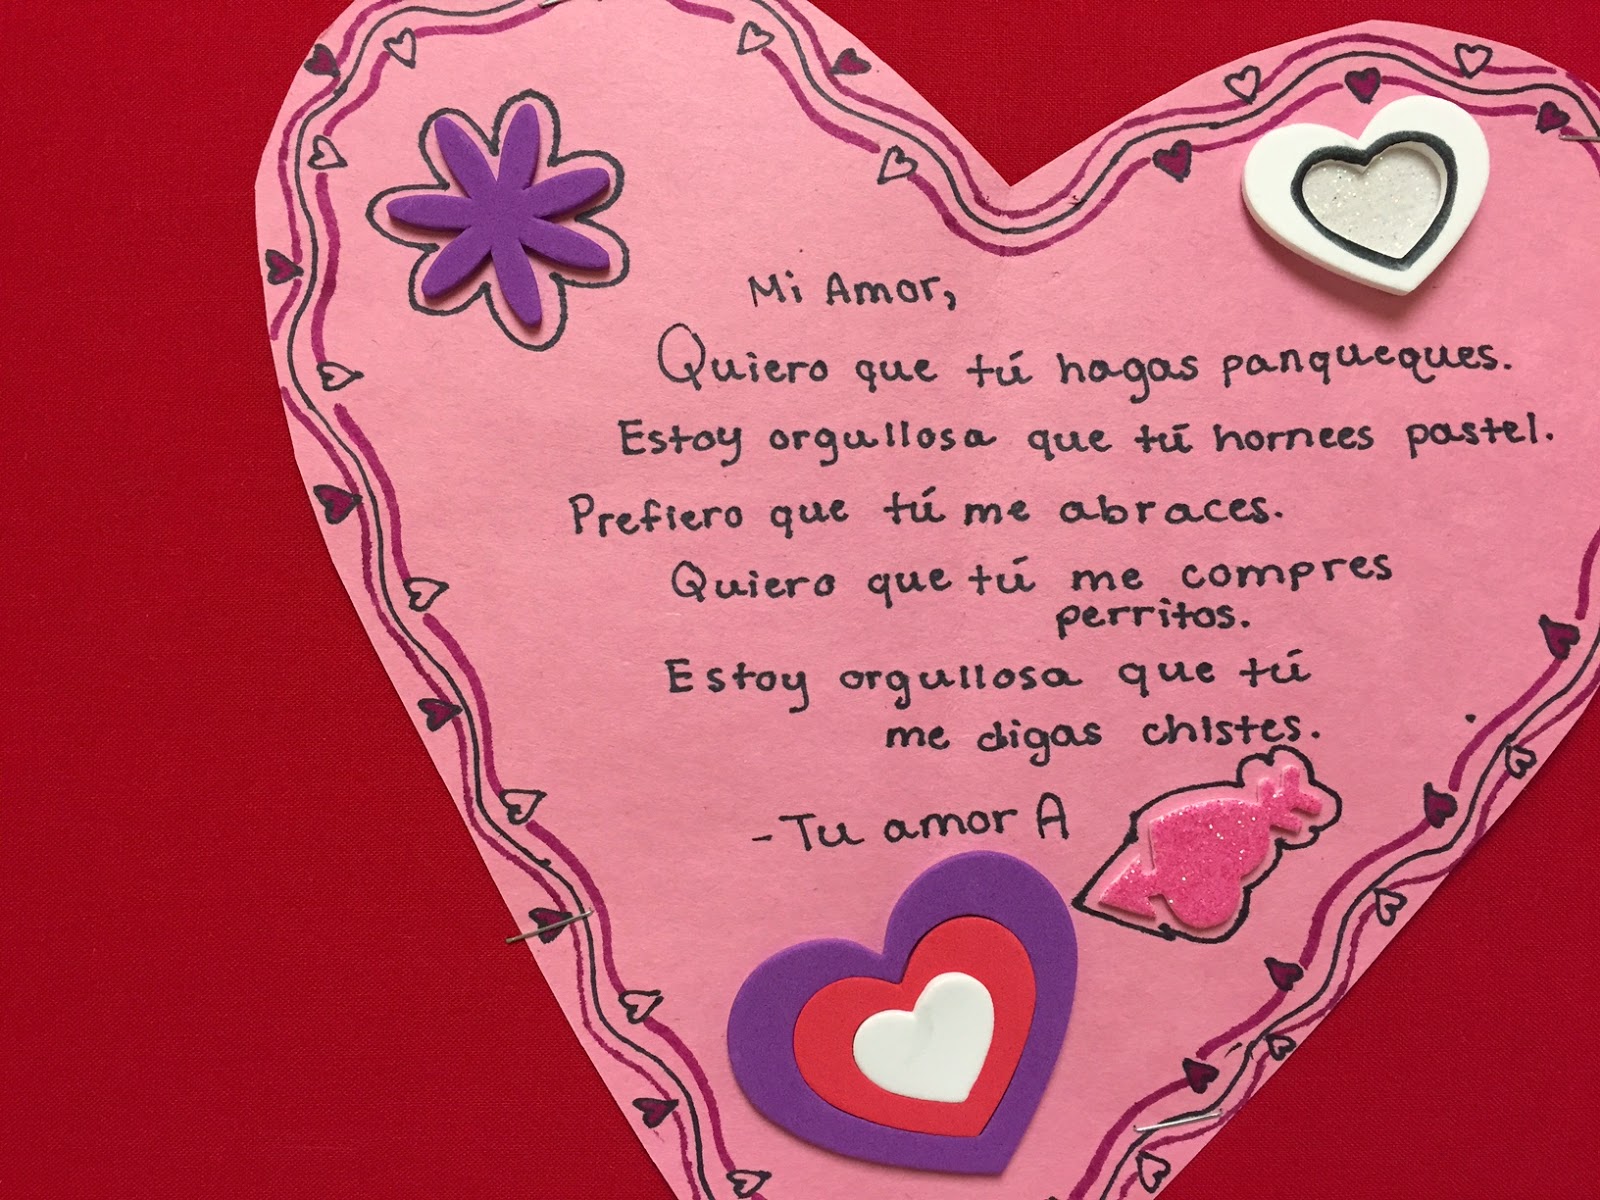 Mi Amor,
Quiero que tú hagas panqueques.
Estoy orgullosa que tú hornees pastel.
Prefiero que tú me abraces.
Quiero que tú me compres
perritos.
Estoy orgullosa que tú
me digas chistes.
-Tu amor A